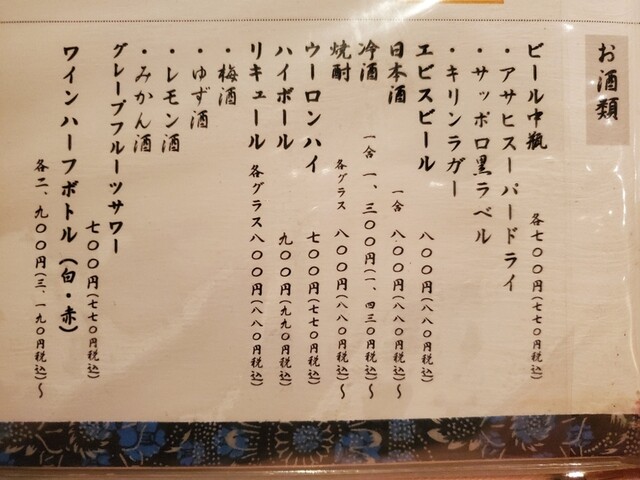 お酒類
ビール中瓶 各七〇〇円(七七〇円税込)
・アサヒスーパードライ
・サッポロ黒ラベル
・キリンラガー
エビスビール 八〇〇円(八八〇円税込)
日本酒 一合 八〇〇円(八八〇円税込)〜
冷酒 一合 一、三〇〇円(一、四三〇円税込)〜
焼酎 各グラス 八〇〇円(八八〇円税込)〜
ウーロンハイ 七〇〇円(七七〇円税込)
ハイボール 九〇〇円(九九〇円税込)
リキュール 各グラス八〇〇円(八八〇円税込)
・梅酒
・ゆず酒
・レモン酒
・みかん酒
グレープフルーツサワー 七〇〇円(七七〇円税込)
ワインハーフボトル(白・赤)
各二、九〇〇円(三、一九〇円税込)〜